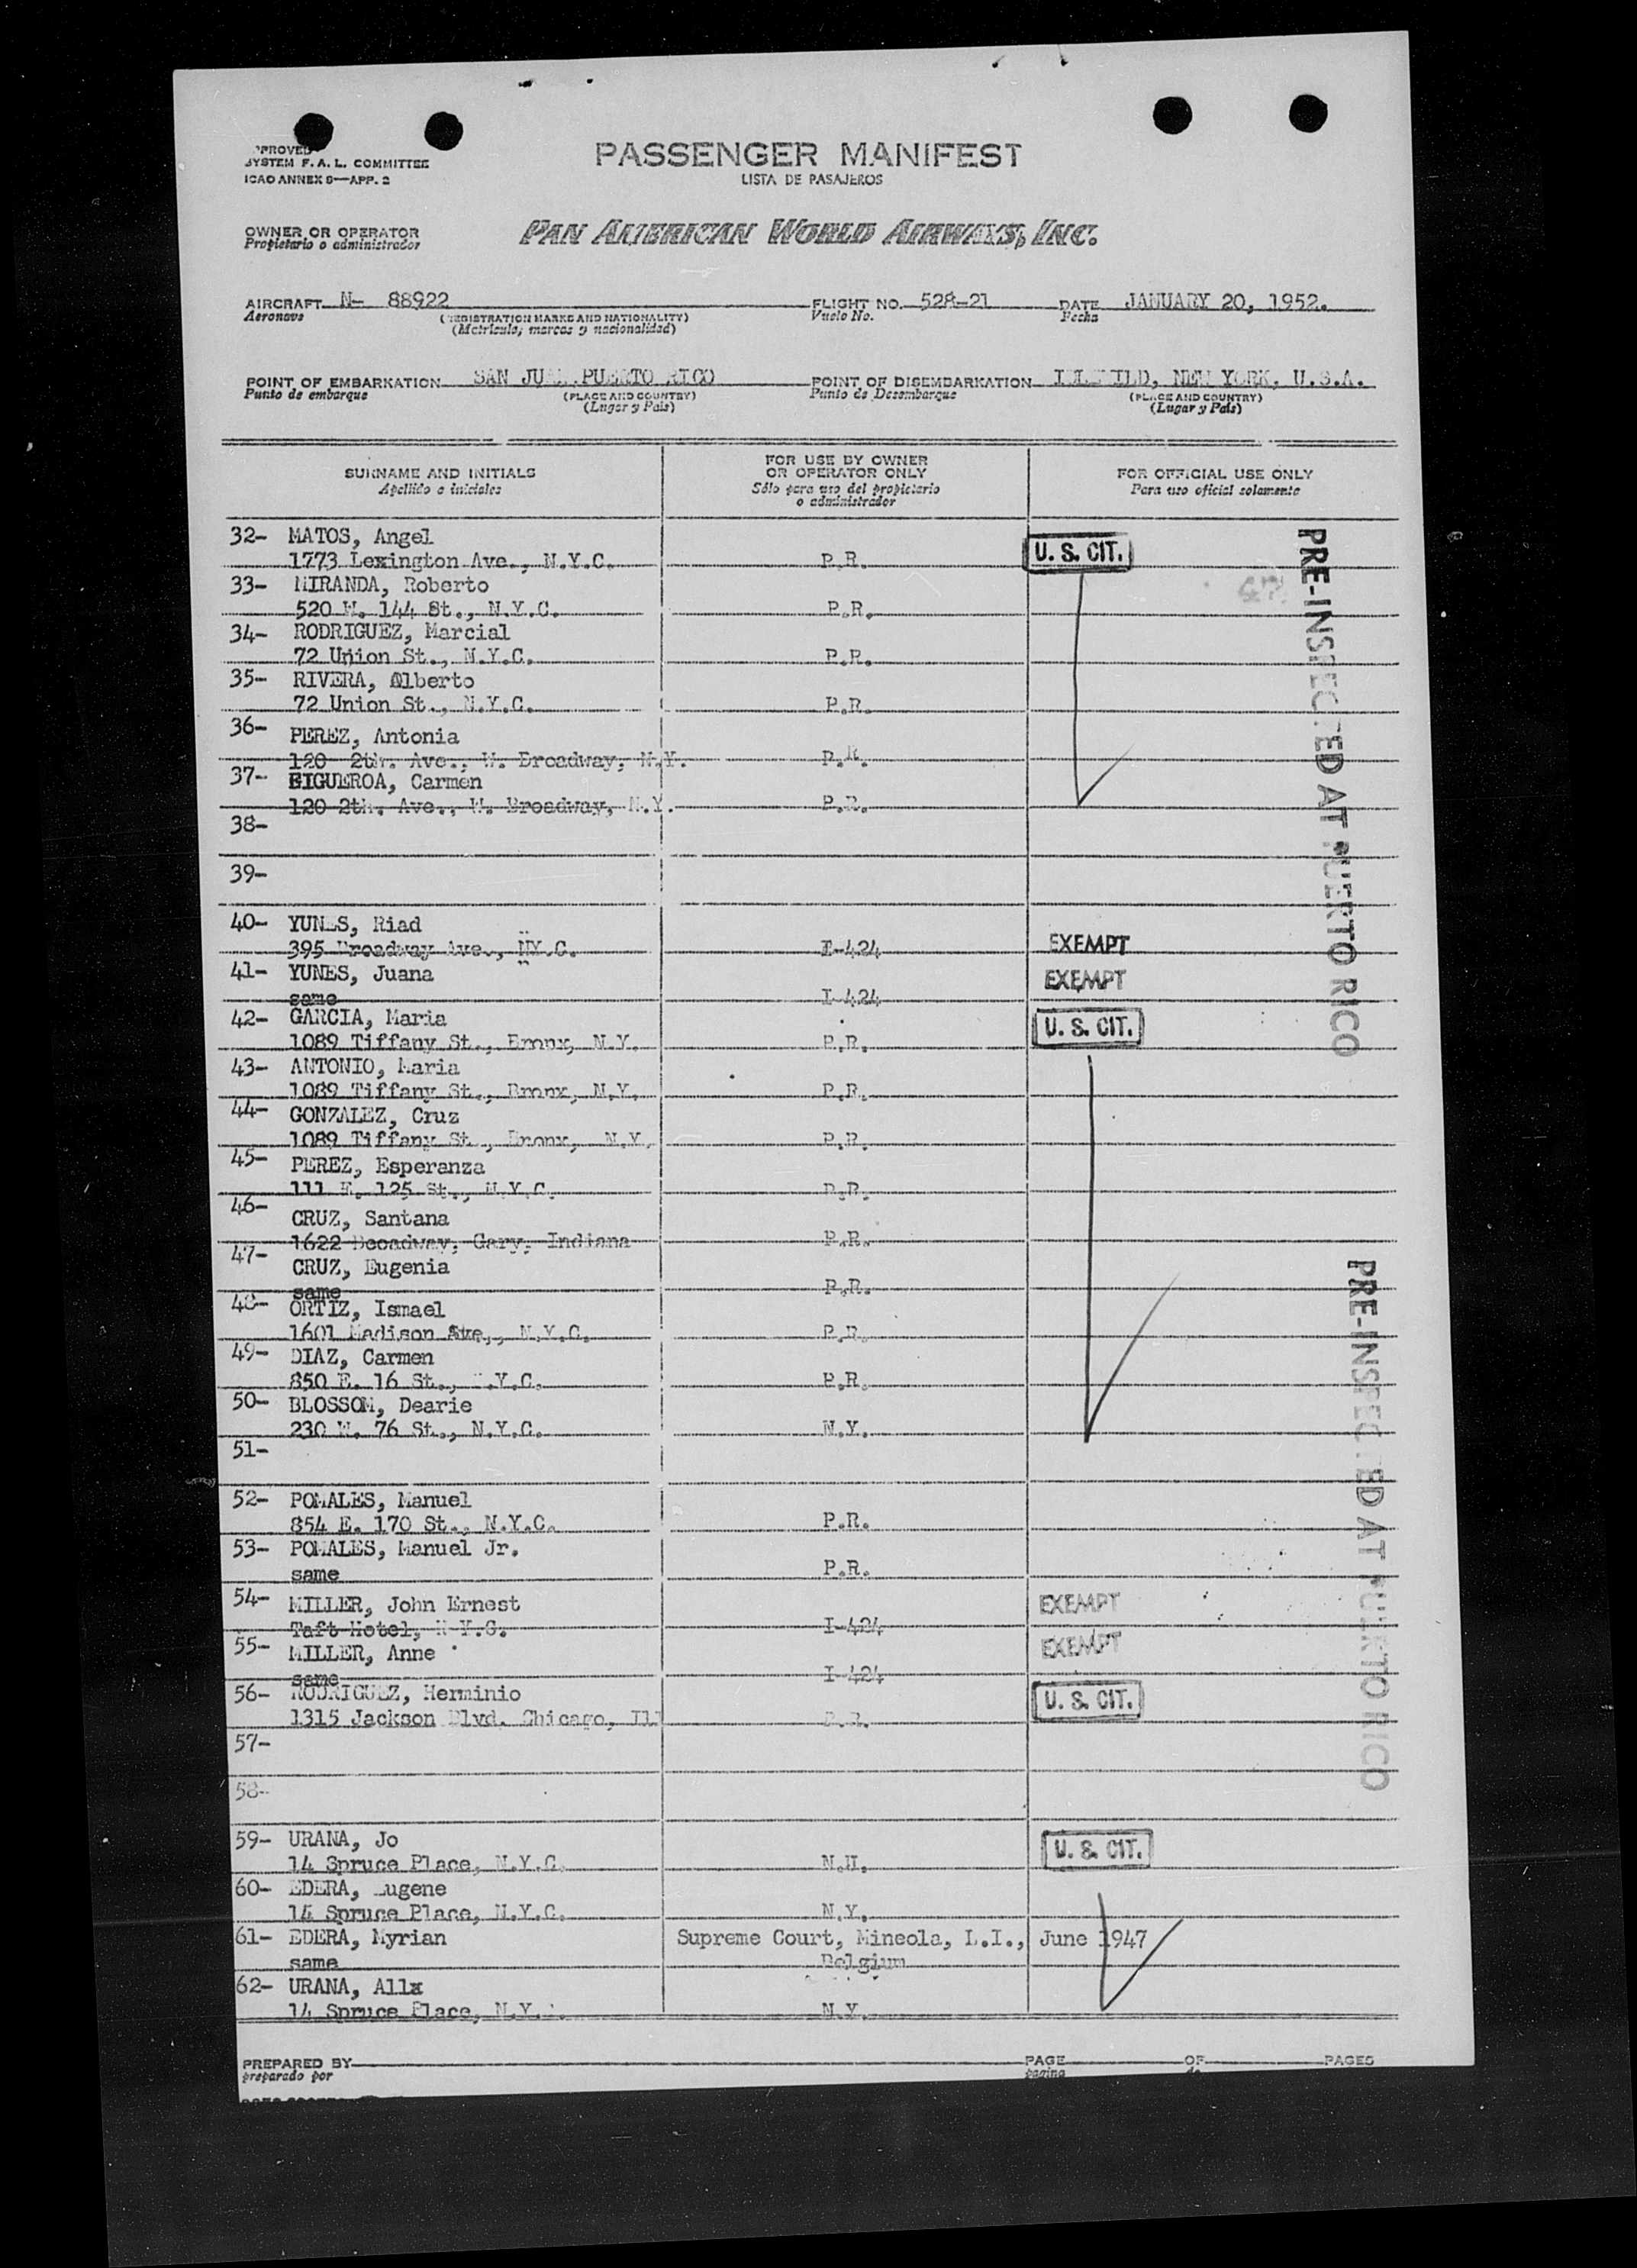 SYSTEM F. A. L. COMMITTEE
ICAO ANNEX 9—APP. 2
PASSENGER MANIFEST
LISTA DE PASAJEROS
OWNER OR OPERATOR
Propietario o administrador
PAN AMERICAN WORLD AIRWAYS, INC.
AIRCRAFT N- 88922 FLIGHT NO. 528-21 DATE JANUARY 20, 1952.
Aeronave (REGISTRATION MARKS AND NATIONALITY) Vuelo No. Fecha
(Matrícula, marcas y nacionalidad)
POINT OF EMBARKATION SAN PUERTO RICO POINT OF DISEMBARKATION NEW YORK, U.S.A.
Punto de embarque (PLACE AND COUNTRY) Punto de Desembarque (PLACE AND COUNTRY)
(Lugar y País) (Lugar y País)
SURNAME AND INITIALS
Apellido e iniciales
FOR USE BY OWNER
OR OPERATOR ONLY
Sólo para uso del propietario
o administrador
FOR OFFICIAL USE ONLY
Para uso oficial solamente
32- MATOS, Angel
1773 Lexington Ave., N.Y.C. P.R. U. S. CIT.
33- MIRANDA, Roberto
520 W. 144 St., N.Y.C. P.R.
34- RODRIGUEZ, Marcial
72 Union St., N.Y.C. P.R.
35- RIVERA, Alberto
72 Union St., N.Y.C. P.R.
36- PEREZ, Antonia
120 2th. Ave., W. Broadway, N.Y. P.R.
37- FIGUEROA, Carmen
120 2th. Ave., W. Broadway, N.Y. P.R.
38-
39-
40- YUNES, Riad
395 Broadway Ave., NY.C. I-424 EXEMPT
41- YUNES, Juana EXEMPT
same I-424
42- GARCIA, Maria U. S. CIT.
1089 Tiffany St., Bronx, N.Y. P.R.
43- ANTONIO, Maria
1089 Tiffany St., Bronx, N.Y. P.R.
44- GONZALEZ, Cruz
1089 Tiffany St., Bronx, N.Y. P.R.
45- PEREZ, Esperanza
111 E. 125 St., N.Y.C. P.R.
46- CRUZ, Santana
1622 Broadway, Gary, Indiana P.R.
47- CRUZ, Eugenia
same P.R.
48- ORTIZ, Ismael
1601 Madison Ave., N.Y.C. P.R.
49- DIAZ, Carmen
850 E. 16 St., .Y.C. P.R.
50- BLOSSOM, Dearie
230 W. 76 St., N.Y.C. N.Y.
51-
52- POMALES, Manuel
854 E. 170 St., N.Y.C. P.R.
53- POMALES, Manuel Jr.
same P.R.
54- MILLER, John Ernest EXEMPT
Taft Hotel, N.Y.C. I-424
55- MILLER, Anne EXEMPT
same I-424
56- RODRIGUEZ, Herminio U. S. CIT.
1315 Jackson Blvd. Chicago, Ill P.R.
57-
58-
59- URANA, Jo U. S. CIT.
14 Spruce Place, N.Y.C.
60- EDERA, Eugene
14 Spruce Place, N.Y.C. N.Y.
61- EDERA, Myrian Supreme Court, Mineola, L.I., June 1947
same Belgium
62- URANA, Alla
14 Spruce Place, N.Y. N.Y.
PREPARED BY PAGE OF PAGES
preparado por pagina de
PRE-INSPECTED AT PUERTO RICO
PRE-INSPECTED AT PUERTO RICO